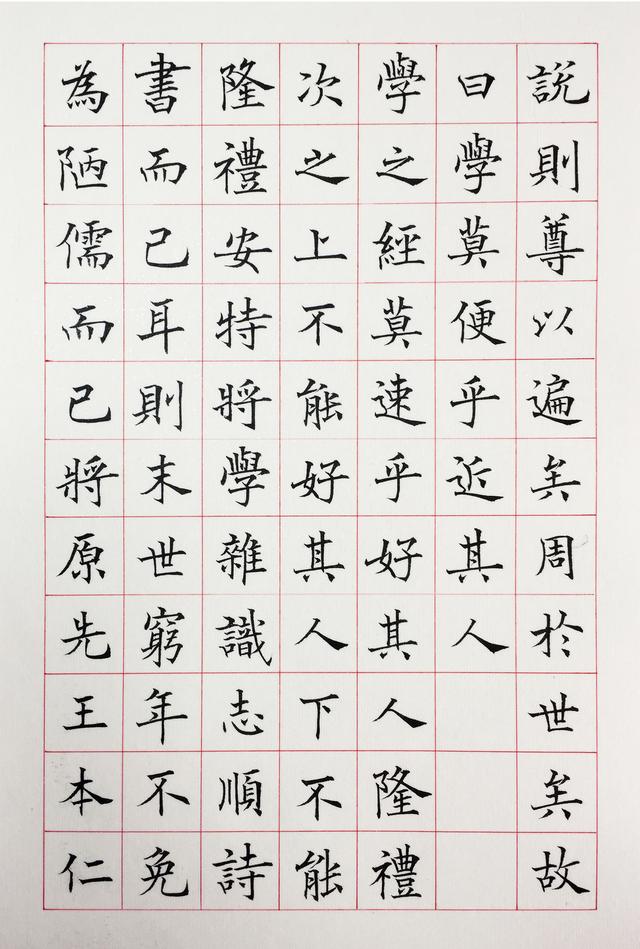 說則尊以遍矣周於世矣故
曰學莫便乎近其人
學之經莫速乎好其人隆禮
次之上不能好其人下不能
隆禮安特將學雜識志順詩
書而已耳則末世窮年不免
為陋儒而已將原先王本仁